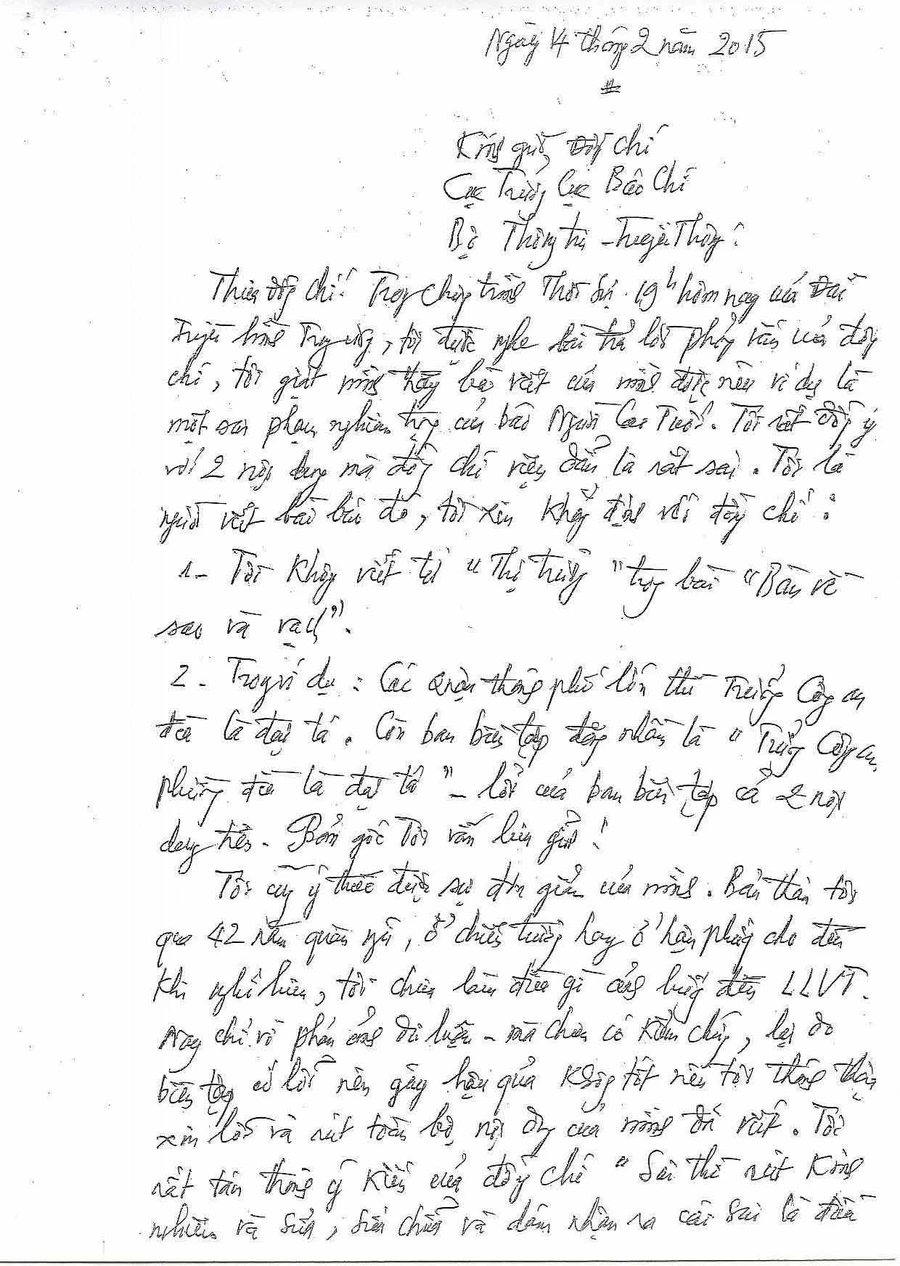 Ngày 14 tháng 2 năm 2015
Kính gửi đồng chí
Cục Trưởng Cục Báo Chí
Bộ Thông tin - Truyền Thông:
Thưa đồng chí! Trong chương trình Thời sự 19h hôm nay của Đài
Truyền hình Trung ương, tôi được nghe bài trả lời phỏng vấn của đồng
chí, tôi giật mình thấy bài viết của mình được nêu ví dụ là
một sai phạm nghiêm trọng của báo Người Cao Tuổi. Tôi rất đồng ý
với 2 nội dung mà đồng chí viện dẫn là rất sai. Tôi là
người viết bài báo đó, tôi xin khẳng định với đồng chí:
1- Tôi không viết từ "Thị trường" trong bài "Bàn về
sao và vạch".
2- Trong ví dụ: Các quận thành phố lớn thì Trưởng Công an
đều là đại tá. Còn ban biên tập đồng nhầm là "Trưởng Công an
phường đều là đại tá" - lỗi của ban biên tập cả 2 nội
dung trên. Bản gốc tôi vẫn lưu giữ!
Tôi cũng ý thức được sự đơn giản của mình. Bản thân tôi
qua 42 năm quân ngũ, ở chiến trường hay ở hậu phương cho đến
khi nghỉ hưu, tôi chưa làm điều gì ảnh hưởng đến LLVT.
Nay chỉ vì phản ánh dư luận - mà chưa có kiểm chứng, lại do
biên tập có lỗi nên gây hậu quả không tốt nên tôi thành thật
xin lỗi và rút toàn bộ nội dung của mình đã viết. Tôi
rất tán thành ý kiến của đồng chí "Sai thì rút kinh
nghiệm và sửa, sửa chữa và dám nhận ra cái sai là điều